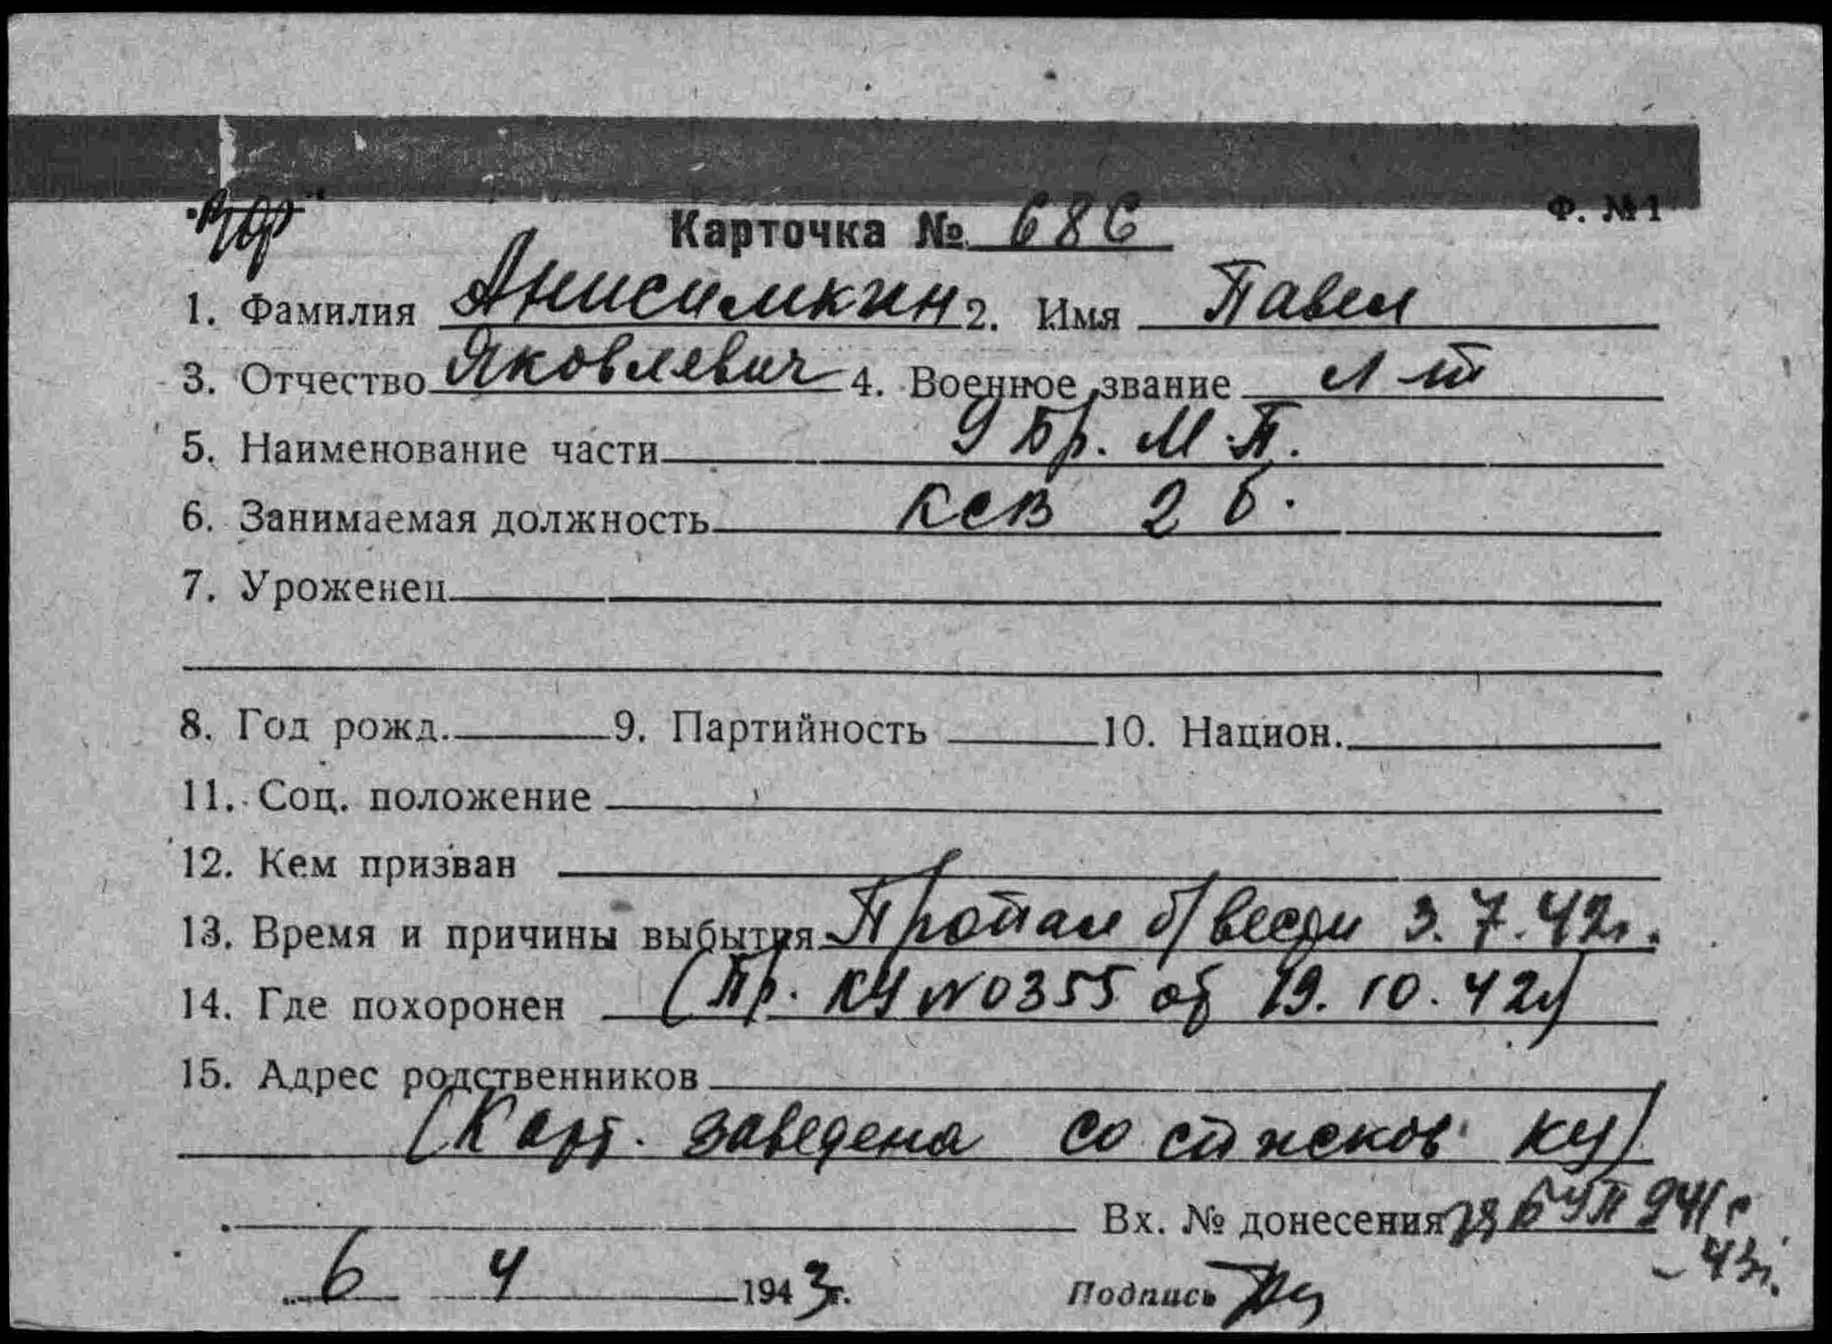 Ф. №1
Карточка № 686
1. Фамилия Анисимкин 2. Имя Павел
3. Отчество Яковлевич 4. Военное звание л-т
5. Наименование части 9 Бр. М.П.
6. Занимаемая должность КСВ 2 б.
7. Уроженец
8. Год рожд. 9. Партийность 10. Национ.
11. Соц. положение
12. Кем призван
13. Время и причины выбытия Пропал б/вести 3.7.42г.
14. Где похоронен (Пр. КУ №0355 от 19.10.42г)
15. Адрес родственников
(Карт. заведена со списков КУ)
Вх. № донесения БУП 941с
-43г.
6 4 1943г. Подпись